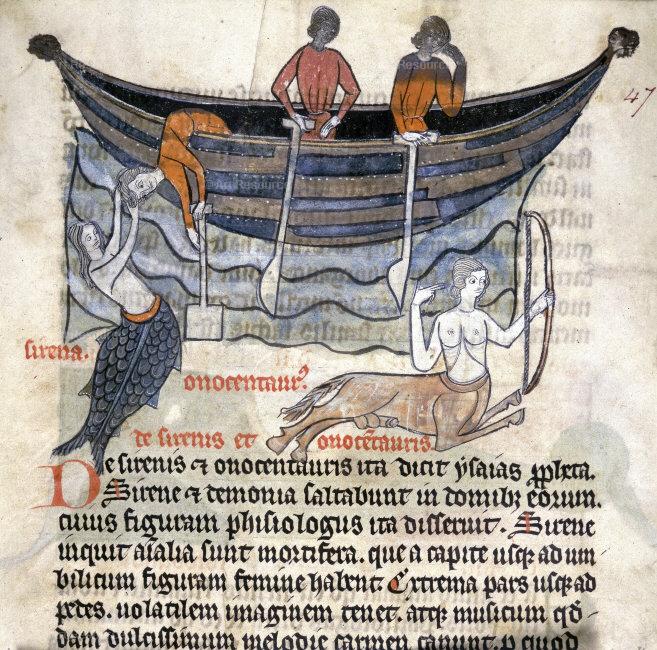 47
sirena.
onocentaurꝰ
de sirenis et onocētauris
De sirenis ⁊ onocentauris ita dicit ysaias ꝓpheta.
Sirene ⁊ demonia saltabunt in domibꝫ eorum.
cuius figuram phisiologus ita disseruit. Sirene
inquit aīalia sunt mortifera. que a capite usqꝫ ad um
bilicum figuram femine habent. Extrema pars usqꝫ ad
pedes. uolatilem imaginem tenet. atqꝫ musicum qd̄-
dam dulcissimum melodie carmen canunt. p quod